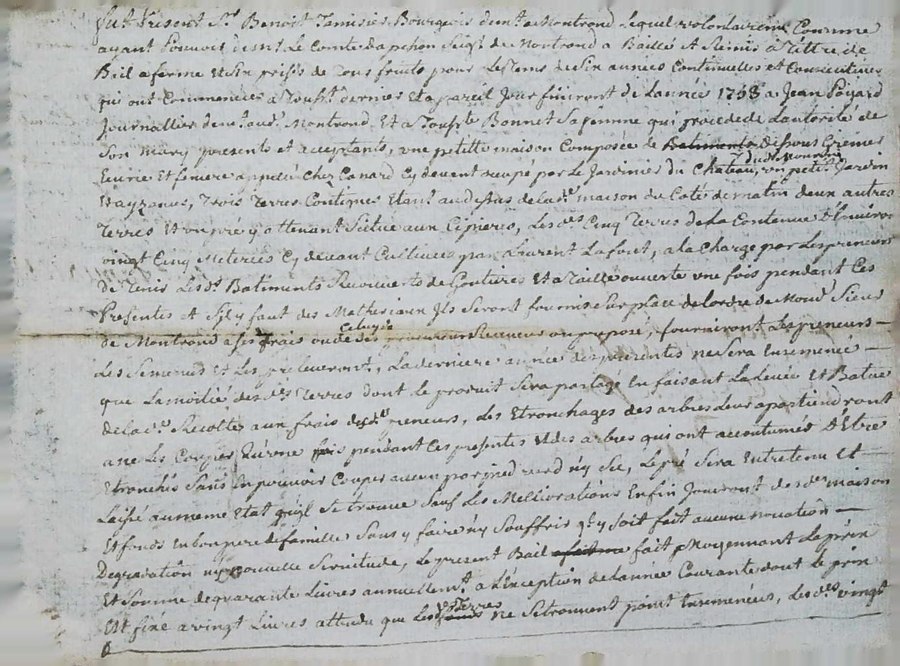 fut Présent Sr. Benoit Tenisier Bourgeois demt. a Montrond lequel volontairemt. Comme
ayant Pouvoir de mr. Le Comte dapchon Seigr. de Montrond a Baillé et Remis a Tittre de
Bail a ferme et Sin prisfs de Tous fruits pour Le Tems de Six années Continuelles et Consecutives
qui ont Commencées a Tousst. dernier et a pareil Jour finiront de Lannée 1768 a Jean Poyard
Journallier demt. aud. Montrond et a Bonnet Sa femme qui procede de Lautorité de
Son mary presents et acceptants, une petitte maison Composée de Batiments Dessous Grenier
Ecurie et feniere appellée Chez Canard Cy devant ocupé par Le Jardinier du Chateau dud. Montrond, un petit Jardin
et ayzances, Trois Terres Contigues Etant audessus de lade. maison du Coté de matin deux autres
Terres et un pré y attenant Situé aux Cipieres, Lesdes. Cinq Terres de La Contenue D'Environ
vingt Cinq Meterées Cy devant Cultivées par Laurent Lafont, a la Charge par Les preneurs
de Tenir Lesds. Batiments Recouverts de Goutieres et a Taille ouverte une fois pendant Ces
Presentes et Sil y faut des Matheriaux Ils Seront fournis Sur place de lordre de Mond. Sieur
de Montrond a ses frais ou de Celuy de Ses preposé, fourniront Les preneurs —
Les Semences et Les preleveront, La derniere année des presentes ne Sera Ensemencé —
que La moitié desdes. Terres dont le produit Sera partagé En faisant La Levée et Batue
de lade. Recolte aux frais desds. preneurs, Les Etronchages des arbres Leur apartiendront
a ne Les Couper qu'une fois pendant Ces presentes et des arbres qui ont accoutumés D'Etre
Etronchés Sans En pouvoir Couper aucun par pied verd n'y Sec, Le pré Sera Entretenu et —
Laissé au meme Etat qu'il Se trouve Sauf Les Melliorations Enfin Jouiront desdes. maison
et fonds En bon pere de famille Sans y faire n'y Souffrir q'l y Soit fait aucune novation —
Degradation n'y nouvelle Servitude, Le present Bail fait Moyennant Le prix
et Somme de quarante Livres annuellemt. a L'Exception de Lannée Courante dont le prix
Est fixé a vingt Livres attendu que Lesdes. Terres ne Se trouvent point Ensemencées, Lesdes. vingt